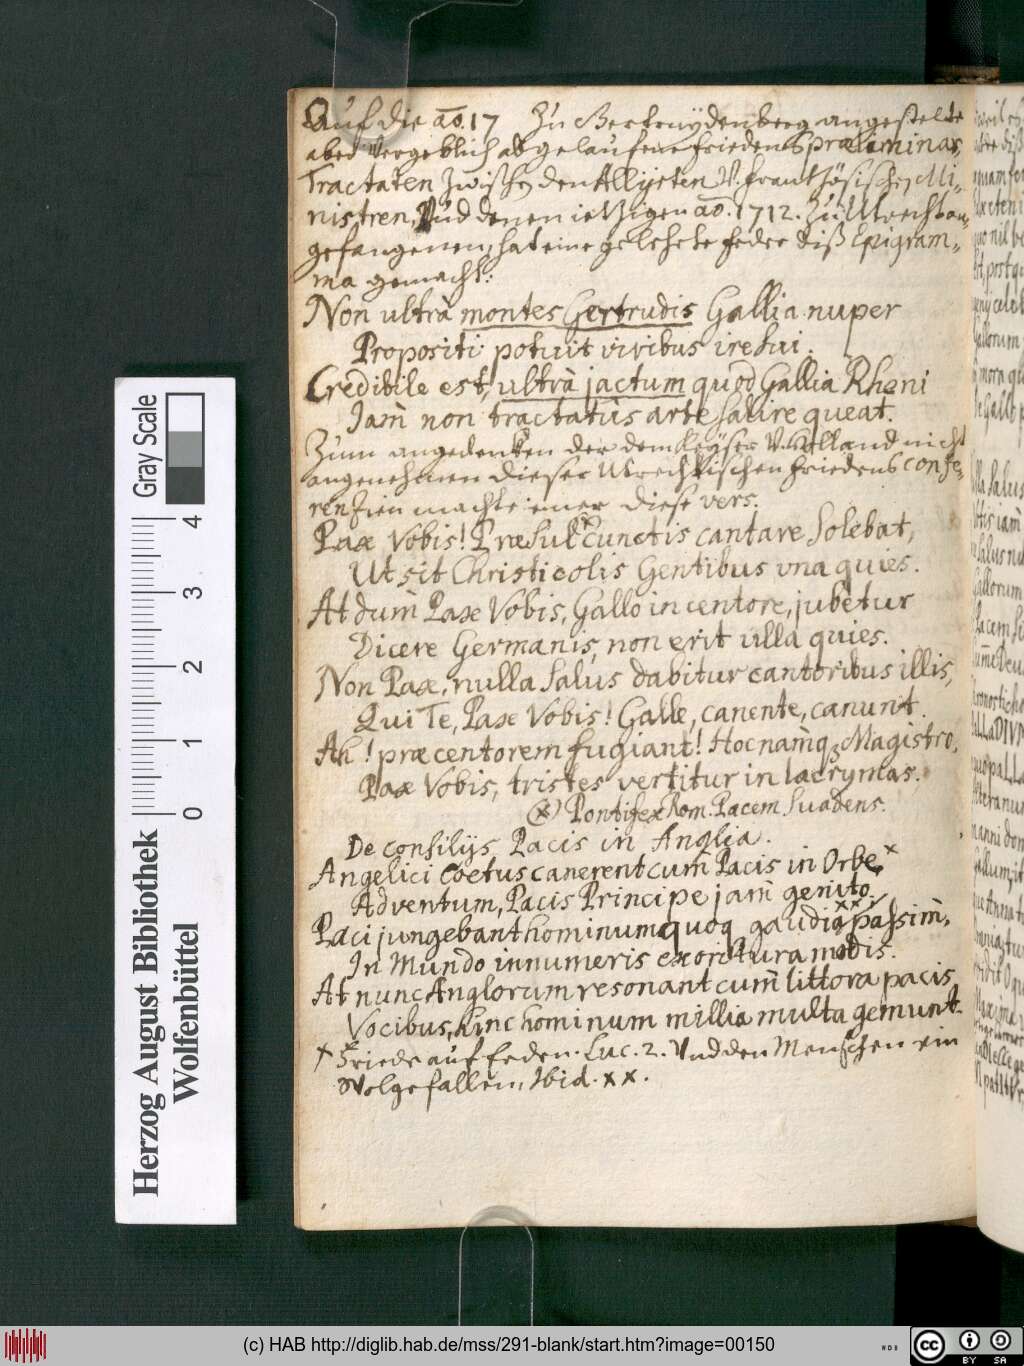 Auf die ao. 17 Zu Gertruydenberg angestelte
aber Vergeblich abgelaufene friedens præliminar,
Tractaten Zwischen den Allijrten V. frantzösischen Mi„
nistren, Vnd denen ietzigen ao. 1712. Zu Utrecht an„
gefangenen, hat eine gelehrte feder diß Epigram„
ma gemacht:
Non ultrà montes Gertrudis Gallia nuper
Propositi potuit viribus ire sui.
Credibile est, ultrà jactum quod Gallia Rheni
Jam̄ non tractatûs arte salire queat.
Zum angedencken der dem Keyser V. Holland nicht
angenehmen dieser Utrechtischen friedens confe„
renzien machte einer diese vers.
Pax Vobis! Præsul × cunctis cantare Solebat,
Ut sit Christicolis Gentibus vna quies.
At dum̄ Pax Vobis, Gallo incentore, jubetur
Dicere Germanis, non erit ulla quies.
Non Pax, nulla Salus dabitur cantoribus illis,
Qui Te, Pax Vobis! Galle, canente, canunt.
Ah! præcentorem fugiant! Hoc namq3 Magistro,
Pax Vobis, tristes vertitur in lacrymas.
(×) Pontifex Rom. Pacem Suadens.
De consilijs Pacis in Anglia.
Angelici Coetus canerent cum̄ Pacis in Orbe ×
Adventum, Pacis Principe jam̄ genito.
Paci jungebant hominum quoq gaudia ×× passim̄,
In Mundo innumeris exoritura modis.
At nunc Anglorum resonant cum̄ littora pacis
Vocibus, hinc hominum millia multa gemunt.
× Friede auf Erden. Luc. 2. Vnd den Menschen ein
Wolgefallen, Ibid. ××.
Herzog August Bibliothek
Wolfenbüttel
Gray Scale
0 1 2 3 4
(c) HAB http://diglib.hab.de/mss/291-blank/start.htm?image=00150
WDB
CC BY SA